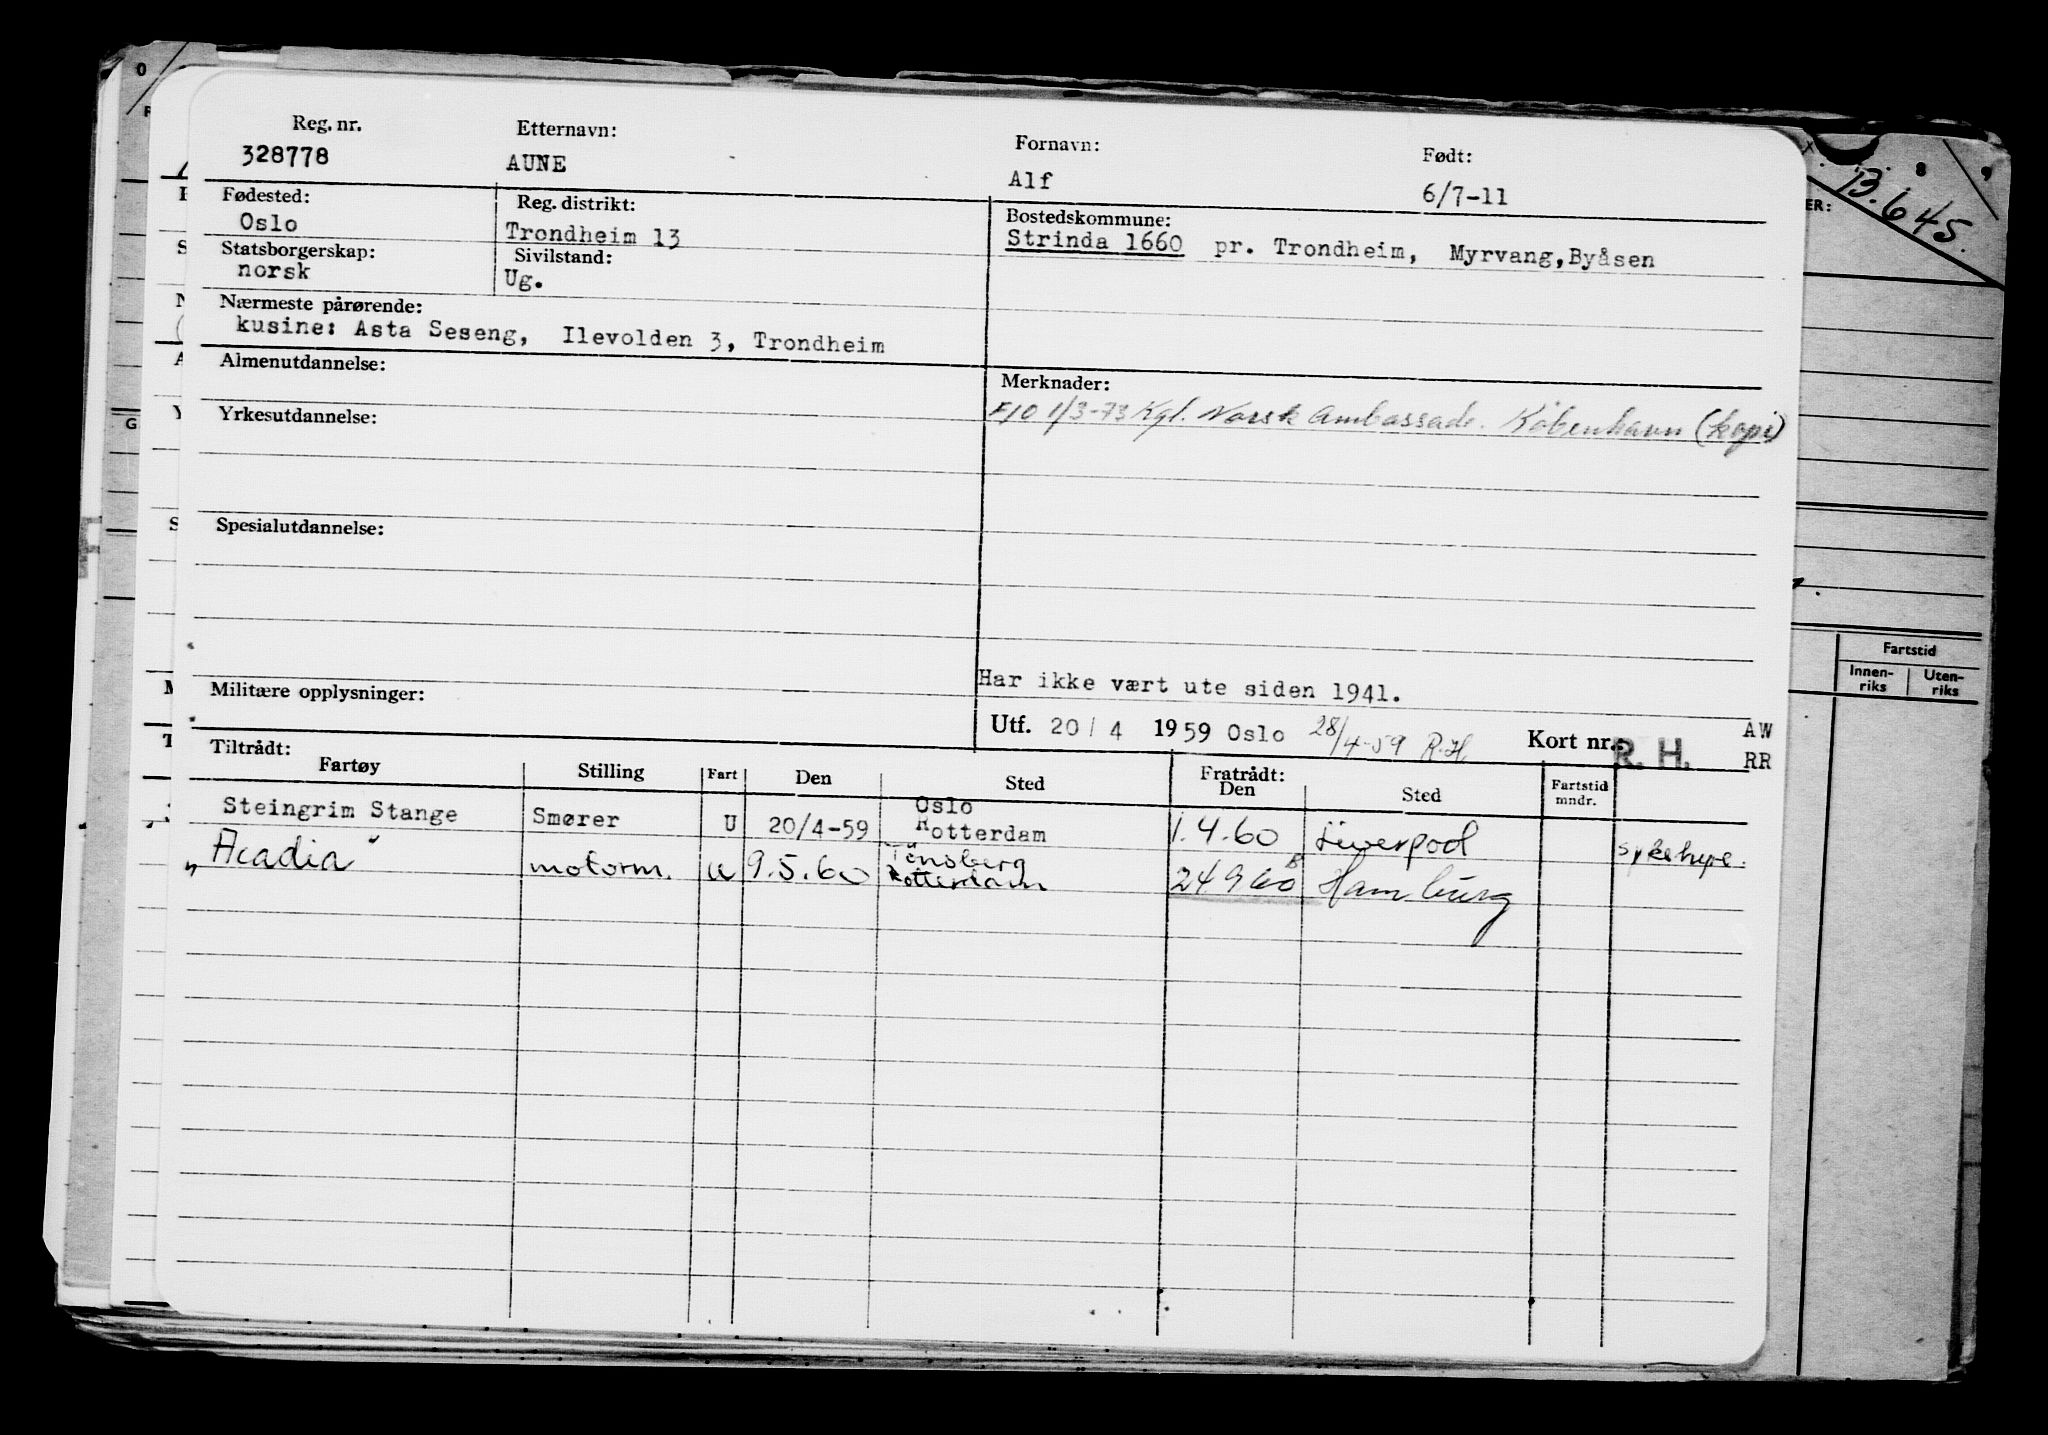 Reg. nr. Etternavn: Fornavn: Født:
328778 AUNE Alf 6/7-11
Fødested: Reg. distrikt: Bostedskommune:
Oslo Trondheim 13 Strinda 1660 pr. Trondheim, Myrvang, Byåsen
Statsborgerskap: Sivilstand:
norsk Ug.
Nærmeste pårørende:
kusine: Asta Seseng, Ilevolden 3, Trondheim
Almenutdannelse: Merknader:
F10 1/3-73 Kgl. Norsk Ambassade. København (kopi)
Yrkesutdannelse:
Spesialutdannelse:
Har ikke vært ute siden 1941.
Militære opplysninger:
Utf. 20/4 1959 Oslo 28/4-59 R.H Kort nr. R. H. AW
RR
Tiltrådt: Fratrådt:
Fartøy Stilling Fart Den Sted Den Sted Fartstid mndr.
Oslo
Steingrim Stange Smører U 20/4-59 Rotterdam 1.4.60 Liverpool
Tønsberg
"Acadia" motorm. u 9.5.60 Rotterdam 24 9 60 Hamburg
13.6.45.
8 9
ER:
Fartstid
Innen-
riks
Uten-
riks